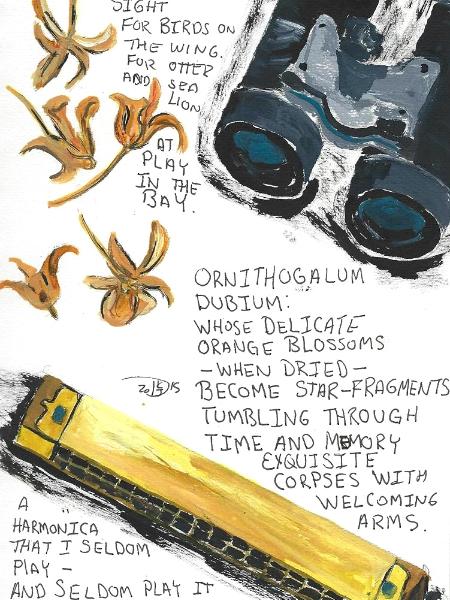 SIGHT
FOR BIRDS ON
THE WING.
FOR OTTER
AND SEA
LION
AT
PLAY
IN THE
BAY.
ORNITHOGALUM
DUBIUM:
WHOSE DELICATE
ORANGE BLOSSOMS
–WHEN DRIED–
BECOME STAR-FRAGMENTS
TUMBLING THROUGH
TIME AND MEMORY
EXQUISITE
CORPSES WITH
WELCOMING
ARMS.
A
HARMONICA
THAT I SELDOM
PLAY –
AND SELDOM PLAY IT